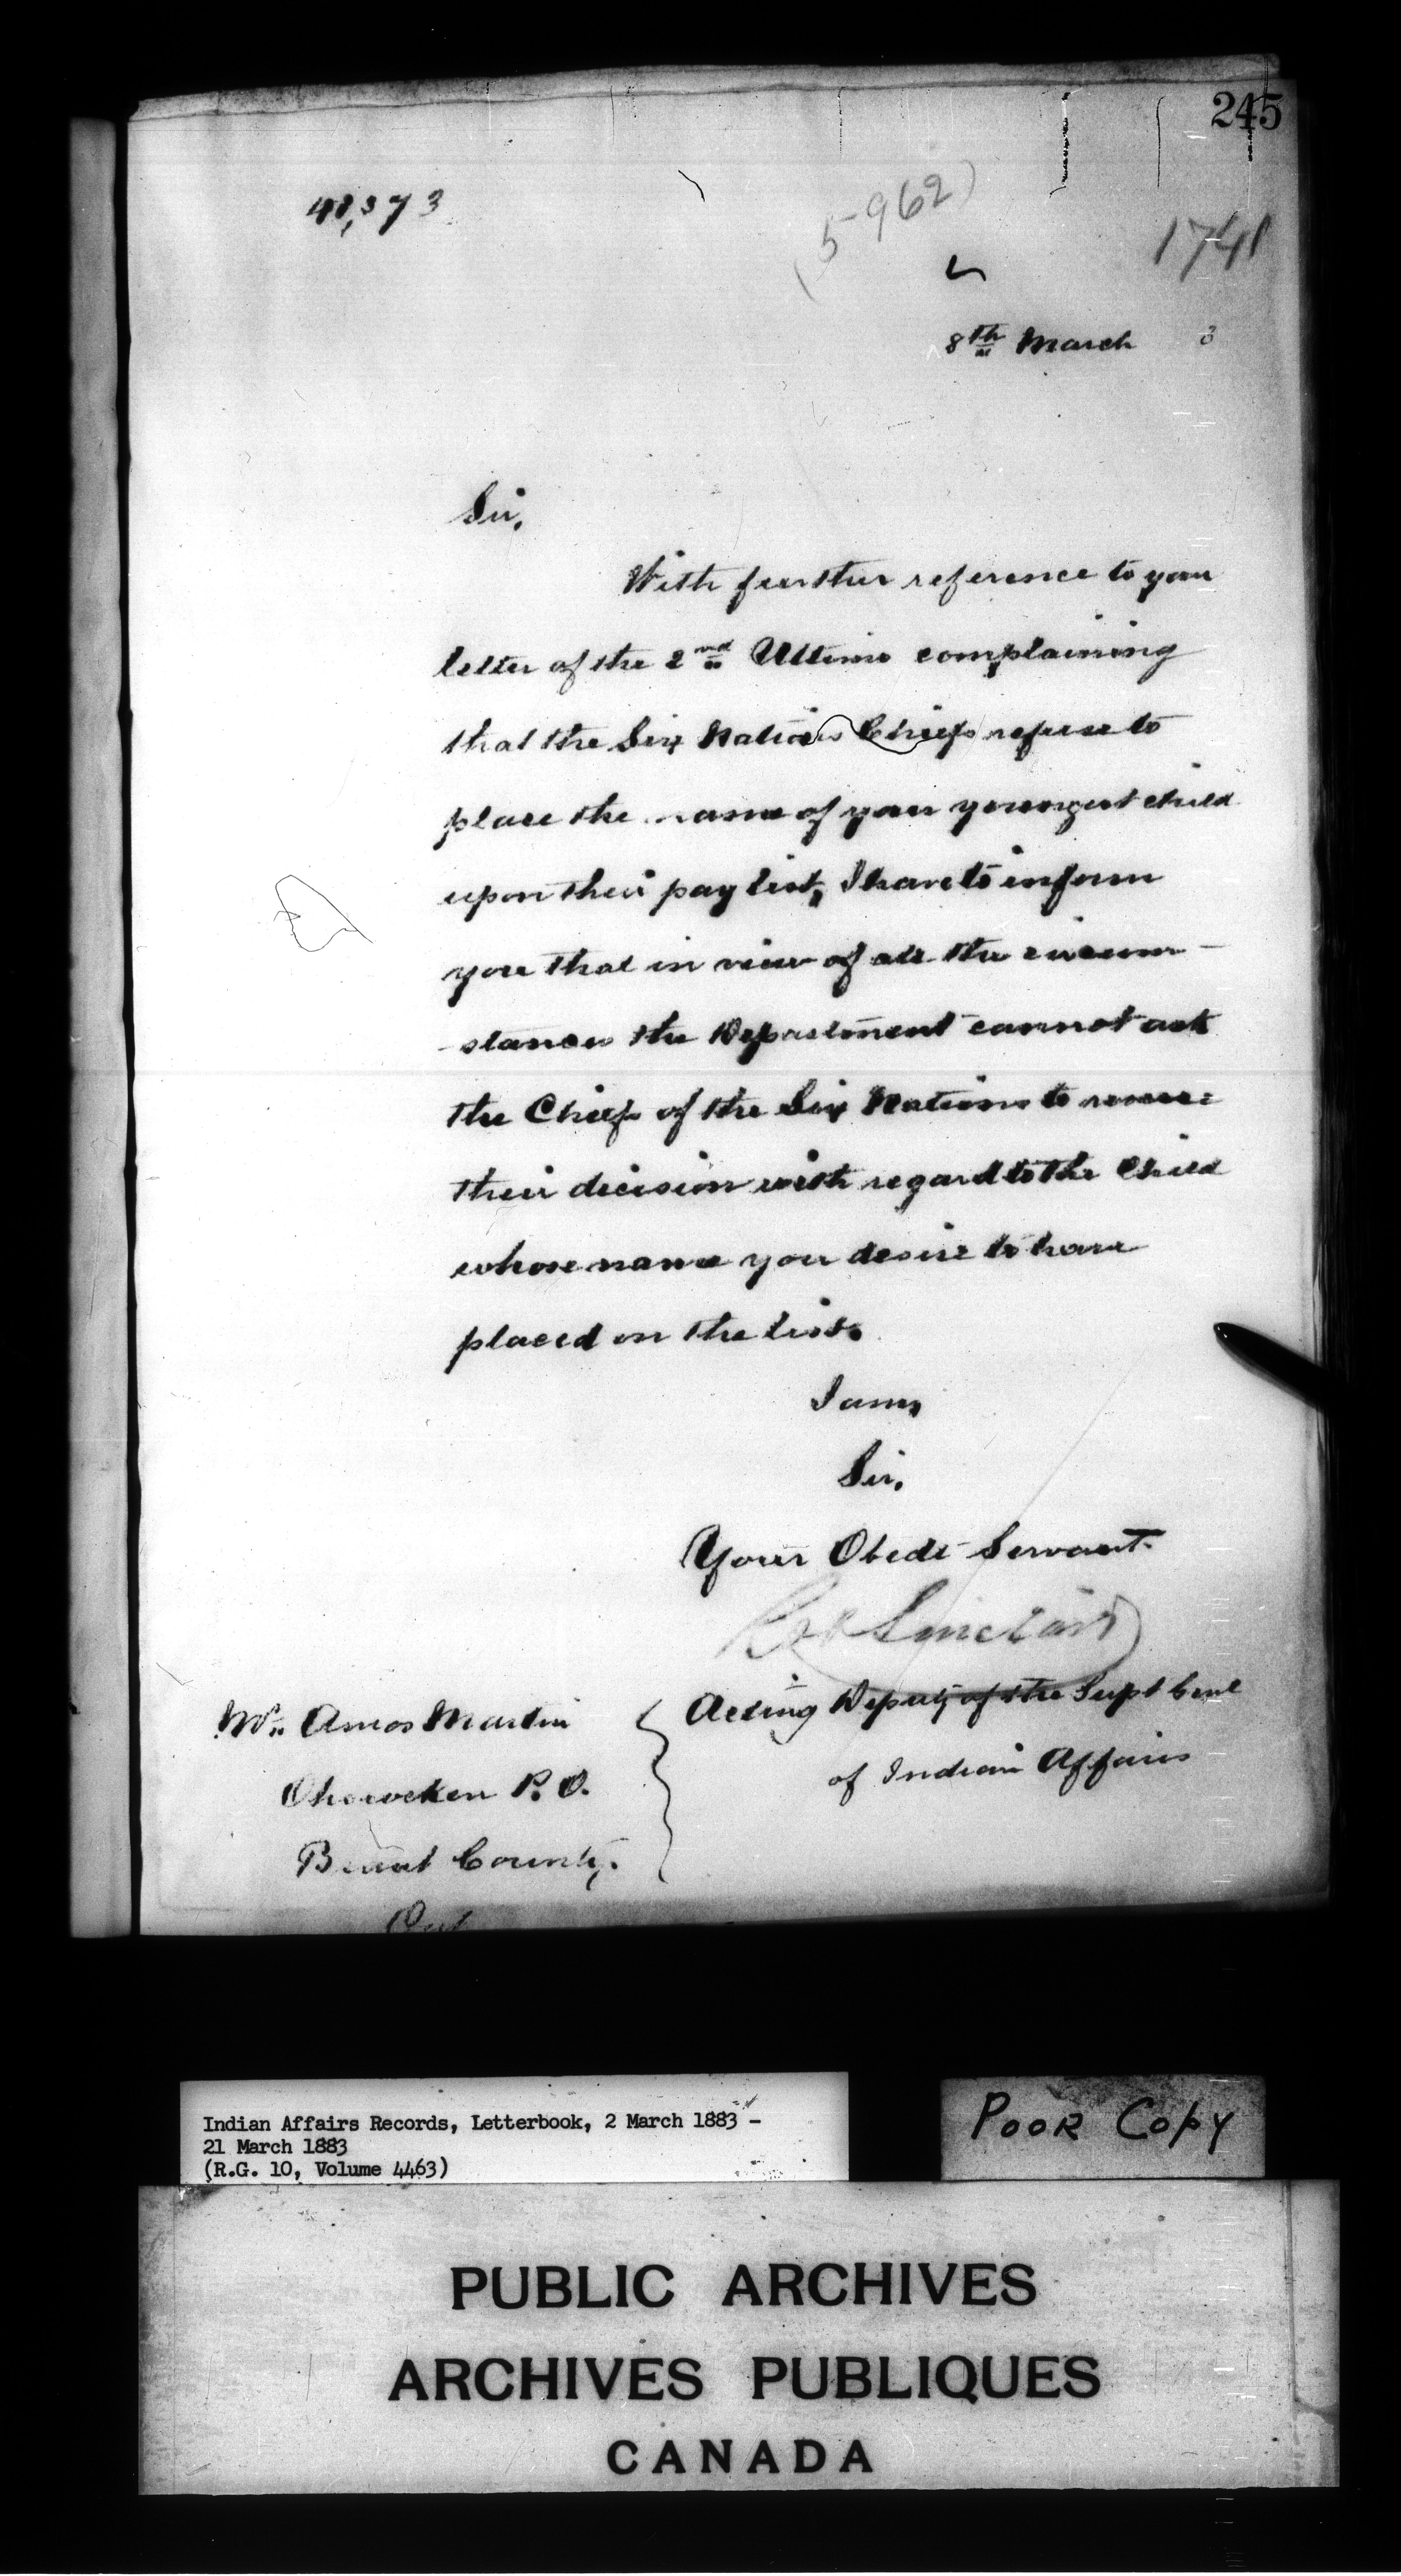 245
41,373
(5962)
1741
8th March 3
Sir,
With further reference to your
letter of the 2nd Ultimo complaining
that the Six Nations Chiefs refuse to
place the name of your youngest child
upon their pay list, I have to inform
you that in view of all the circum-
-stances the Department cannot ask
the Chiefs of the Six Nations to
their decision with regard to the Child
whose name you desire to have
placed on the list.
I am,
Sir,
Your Obedt Servant
Sinclair
Acting Deputy of the Supt Genl
of Indian Affairs
Mr. Amos Martin
Ohsweken P.O.
Brant County,
Ont
Indian Affairs Records, Letterbook, 2 March 1883 -
21 March 1883
(R.G. 10, Volume 4463)
POOR COPY
PUBLIC ARCHIVES
ARCHIVES PUBLIQUES
CANADA